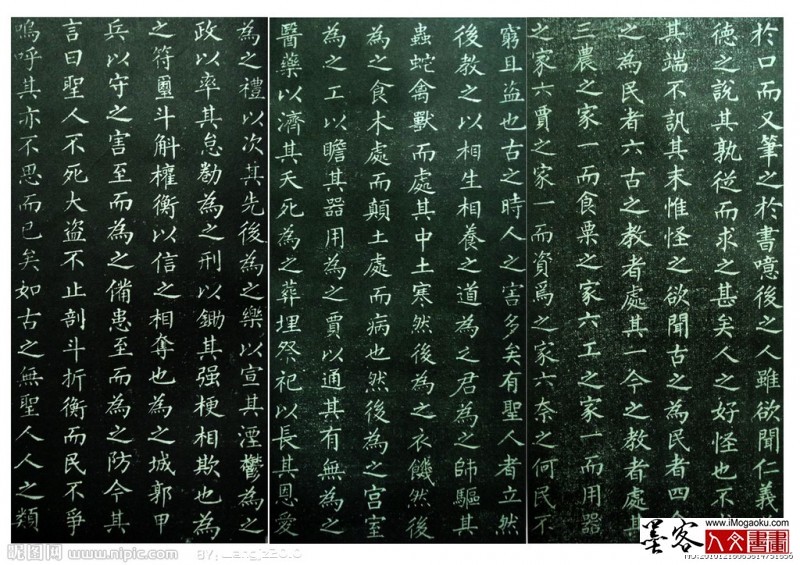 於口而又筆之於書噫後之人雖欲聞仁義
德之說其孰從而求之甚矣人之好怪也不
其端不訊其末惟怪之欲聞古之為民者四今
之為民者六古之教者處其一今之教者處其
三農之家一而食粟之家六工之家一而用器
之家六賈之家一而資焉之家六奈之何民不
窮且盜也古之時人之害多矣有聖人者立然
後教之以相生相養之道為之君為之師驅其
蟲蛇禽獸而處其中土寒然後為之衣饑然後
為之食木處而顛土處而病也然後為之宮室
為之工以贍其器用為之賈以通其有無為之
醫藥以濟其夭死為之葬埋祭祀以長其恩愛
為之禮以次其先後為之樂以宣其湮鬱為之
政以率其怠勌為之刑以鋤其强梗相欺也為
之符璽斗斛權衡以信之相奪也為之城郭甲
兵以守之害至而為之備患至而為之防今其
言曰聖人不死大盜不止剖斗折衡而民不爭
嗚呼其亦不思而已矣如古之無聖人人之類
昵图网 www.nipic.com
www.iMogaoku.com
墨客 人文書畫